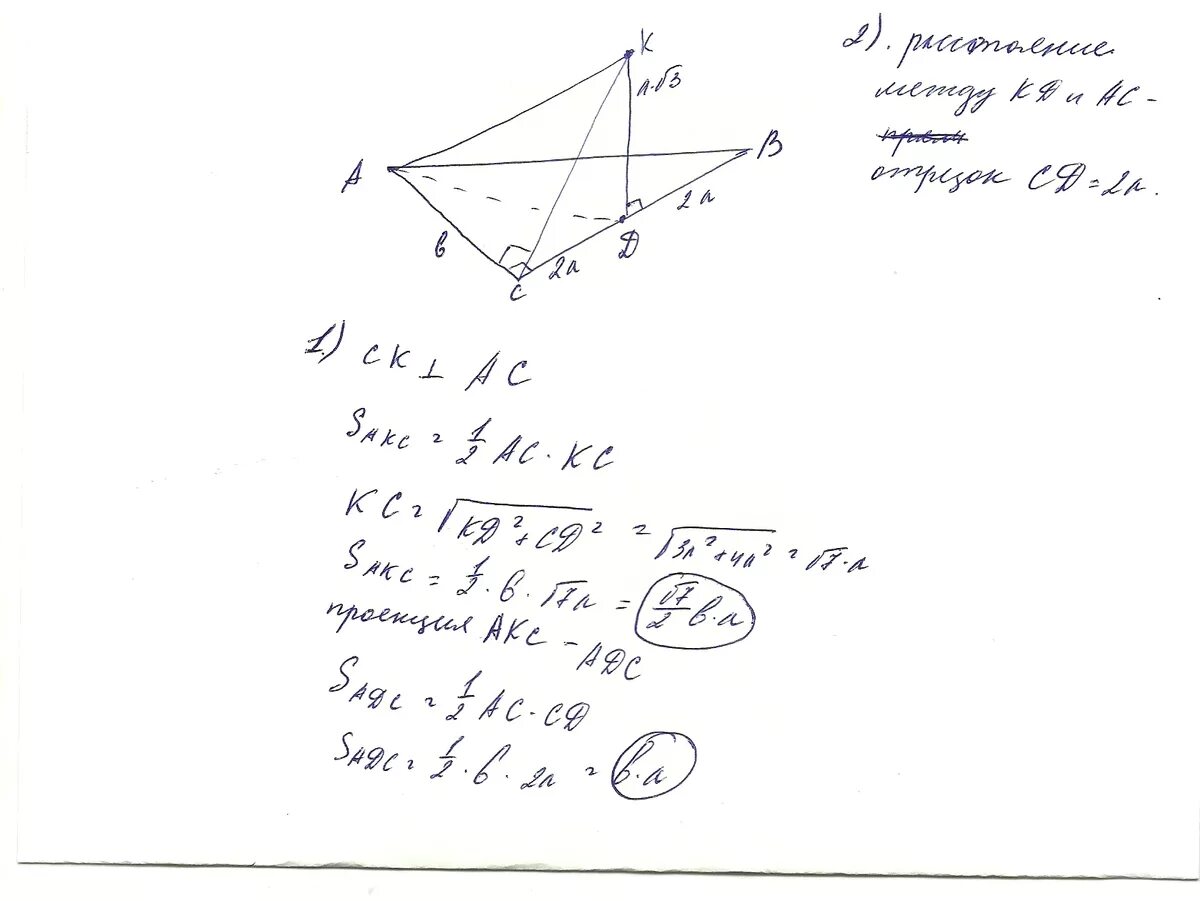 K
a·√3
A
B
2a
D
в
2a
C
2). расстояние
между KD и AC -
отрезок CD = 2a.
1.) CK ⊥ AC
S AKC = 1/2 AC · KC
KC = √KD² + CD² = √3a² + 4a² = √7·a
S AKC = 1/2 · в · √7a = √7/2 в·a
проекция AKC - ADC
S ADC = 1/2 AC · CD
S ADC = 1/2 · в · 2a = в·a